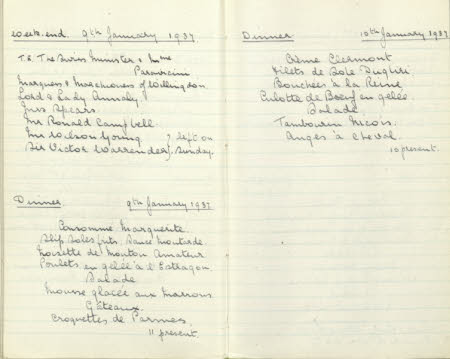 Week end. 9th January 1937
T.E. The Swiss Minister & Mme
Paravicini
Marquess & Marchioness of Willingdon.
Lord & Lady Annaly
Mrs Spears
Mr Ronald Campbell
Mr Wilson Young } left on
Sir Victor Warrender } Sunday.
Dinner 9th January 1937
Consommé Marguerite
Slip Soles frits. Sauce Moutarde
Noisette de Mouton Amateur
Poulets en gelée à l'Estragon.
Salade
Mousse glacée aux Marrons
Gâteaux
Croquettes de Parmes
11 present.
Dinner 10th January 1937
Crème Clermont
Filets de Sole Dugléré
Bouchées à la Reine
Culotte de Boeuf en gelée
Salade
Tambourin Niçois.
Anges à cheval
10 present.